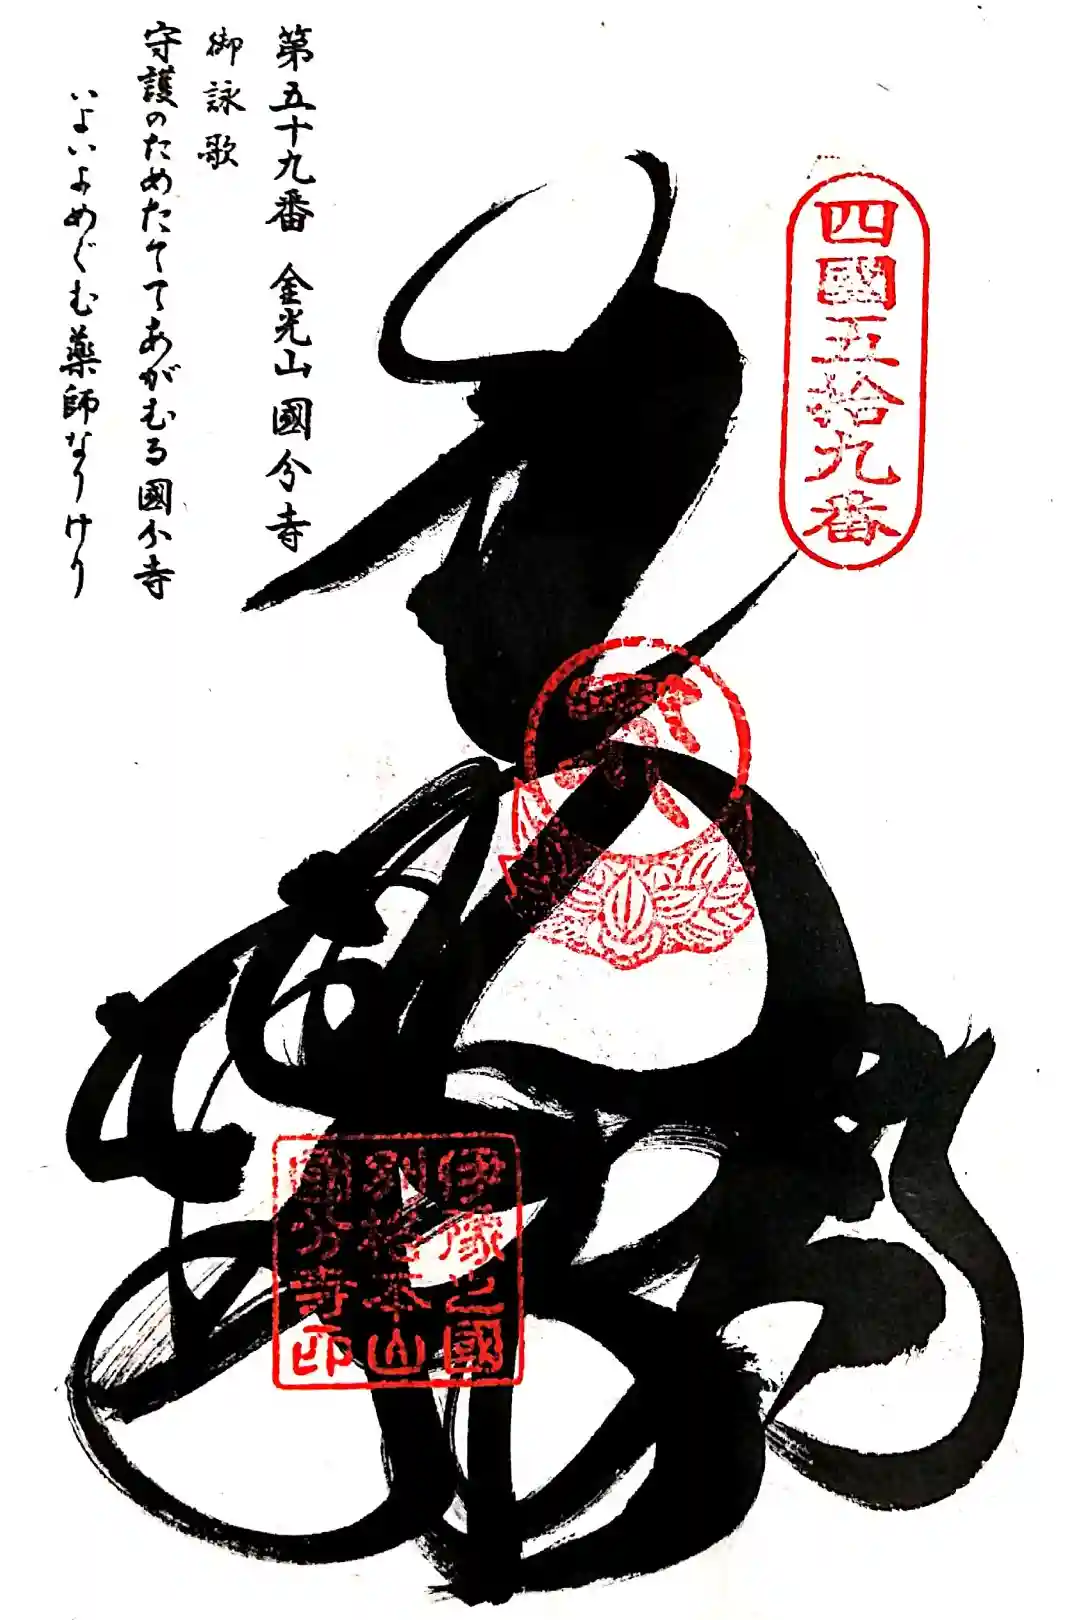 四國五拾九番
第五十九番 金光山 國分寺
御詠歌
守護のためたてゝあがむる國分寺
いよいよめぐむ薬師なりけり
伊豫之國
別格本山
國分寺印